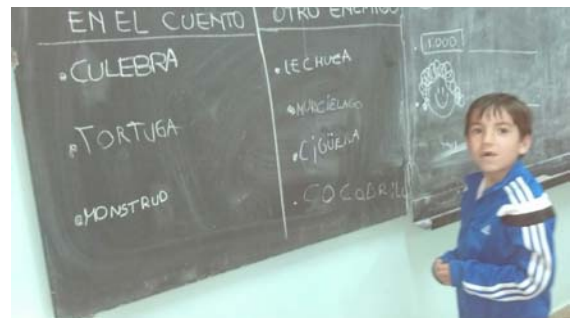 EN EL CUENTO
CULEBRA
TORTUGA
MONSTRUO
OTRO
LECHUZA
MURCIELAGO
CIGÜEÑA
COCODRILO
1.000